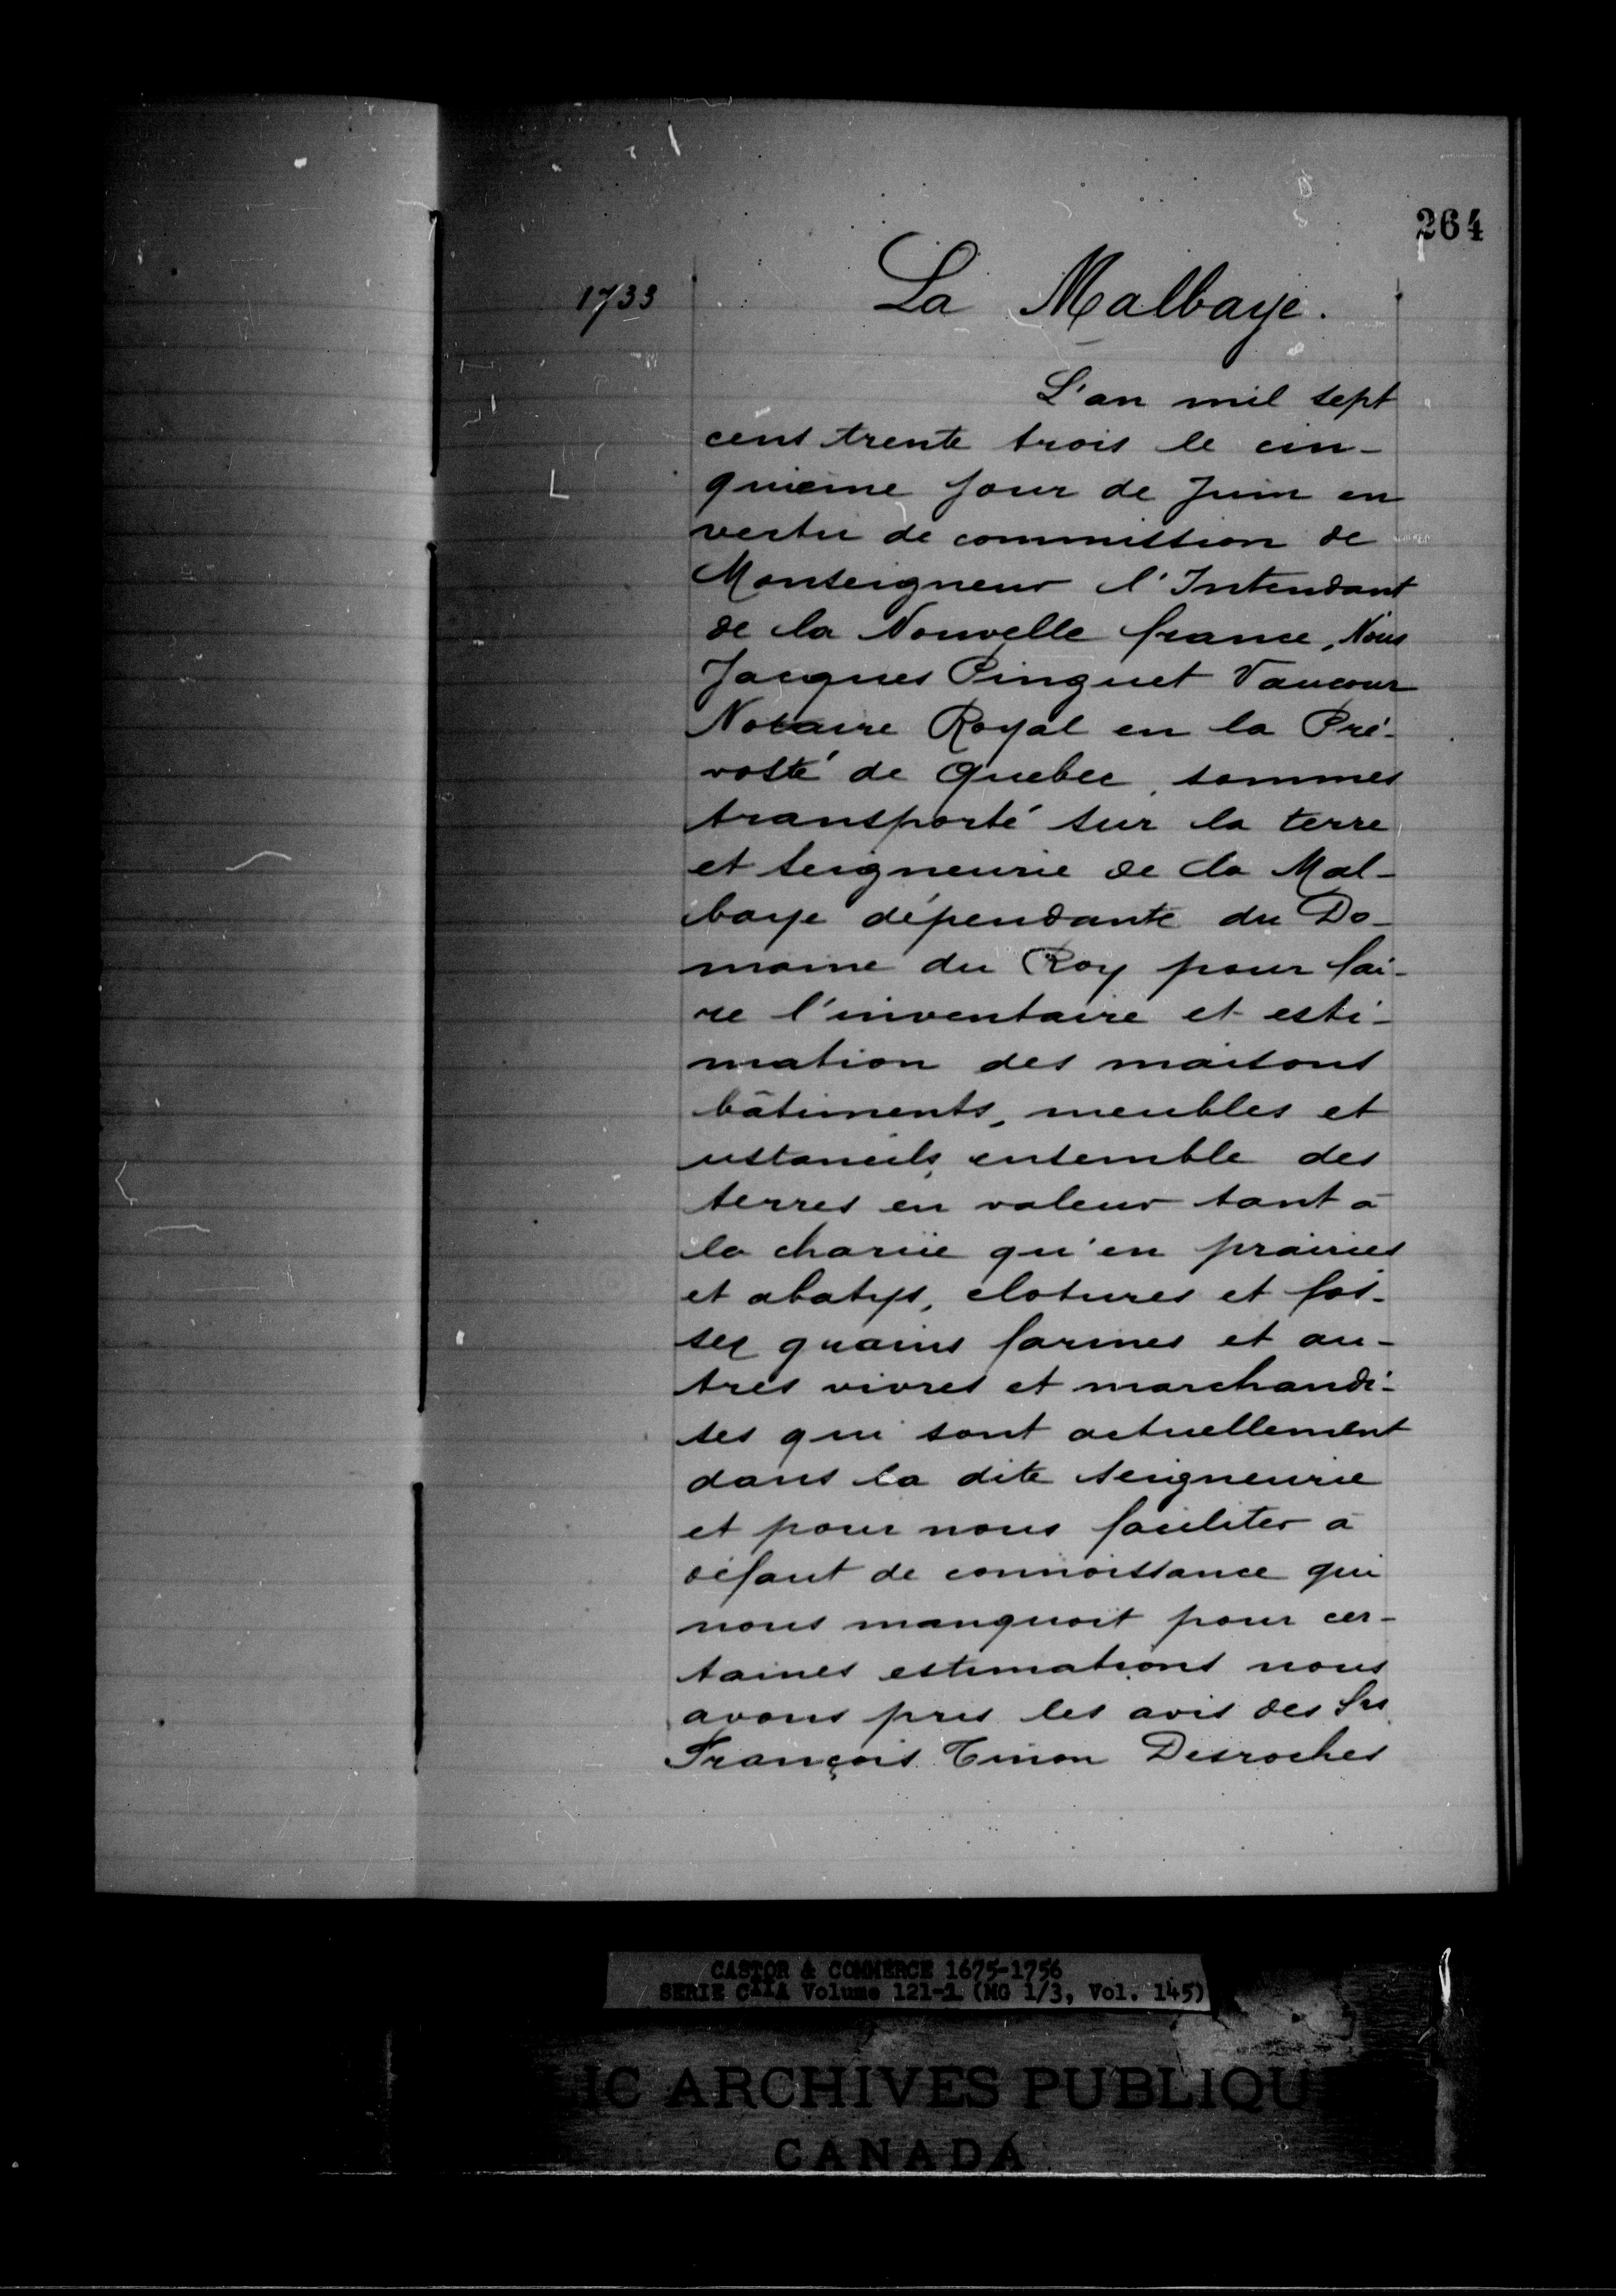 264
1733
La Malbaye.
L'an mil sept
cens trente trois le cin-
quieme jour de Juin en
vertu de commission de
Monseigneur l'Intendant
de la Nouvelle france, Nous
Jacques Pinguet Vaucour
Notaire Royal en la Pré-
vosté de Quebec, sommes
transporté sur la terre
et seigneurie de la Mal-
baye dépendante du Do-
maine du Roy pour fai-
re l'inventaire et esti-
mation des maisons
bâtiments, meubles et
ustancils, ensemble des
terres en valeur tant à
la charüe qu'en prairies
et abatys, clotures et fos-
sez grains farines et au-
tres vivres et marchandi-
ses qui sont actuellement
dans la dite seigneurie
et pour nous faciliter à
défaut de connoissance qui
nous manquoit pour cer-
taines estimations nous
avons pris les avis des Srs
François Tinon Desroches
CASTOR & COMMERCE 1675-1756
SERIE C11A Volume 121-1 (MG 1/3, Vol. 145)
IC ARCHIVES PUBLIQU
CANADA